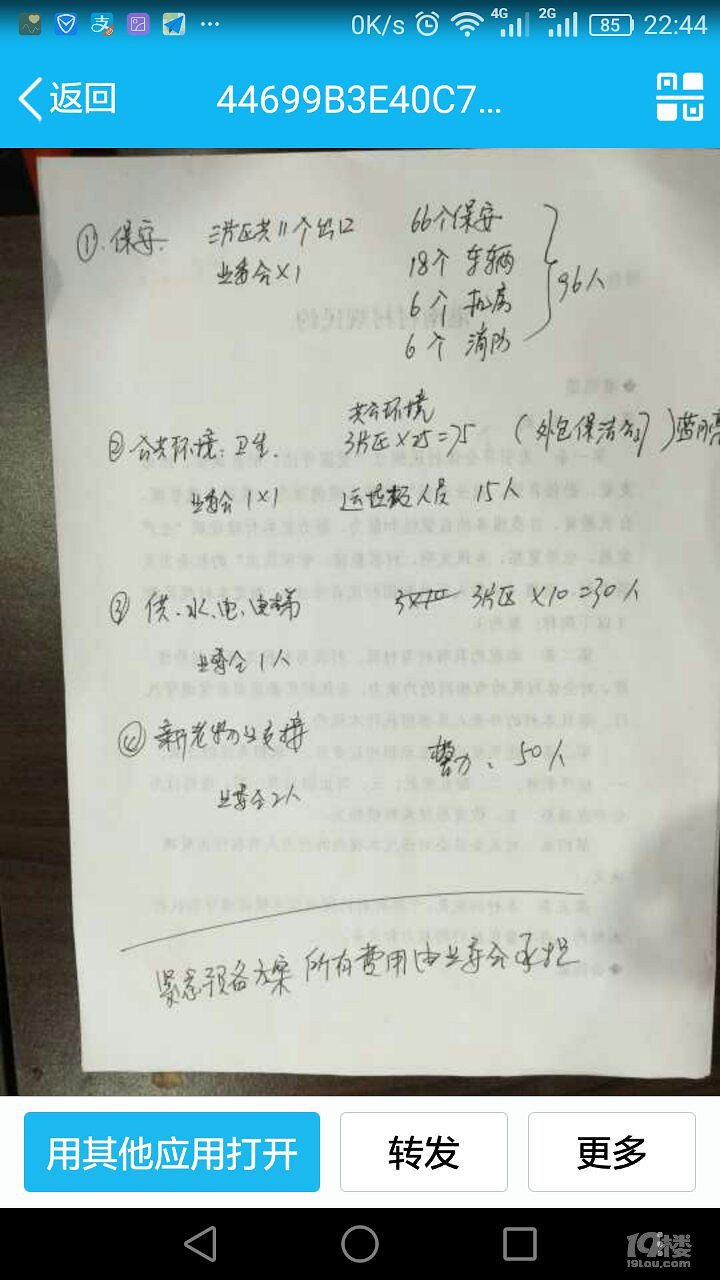 0K/s 4G 2G 85 22:44
返回 44699B3E40C7...
① 保安. 三片区共11个出口 66个保安
业委会×1 18个 车辆
6个 机房
6个 消防
96人
② 公共环境:卫生. 公共环境
3片区×25=75 (外包保洁公司)
业委会 1×1 运垃圾人员 15人
③ 供、水、电、电梯 3片区×10=30人
业委会1人
④ 新老物业交接 警力:50人
业委会2人
紧急预备方案 所有费用由业委会承担
用其他应用打开 转发 更多
19楼
19lou.com